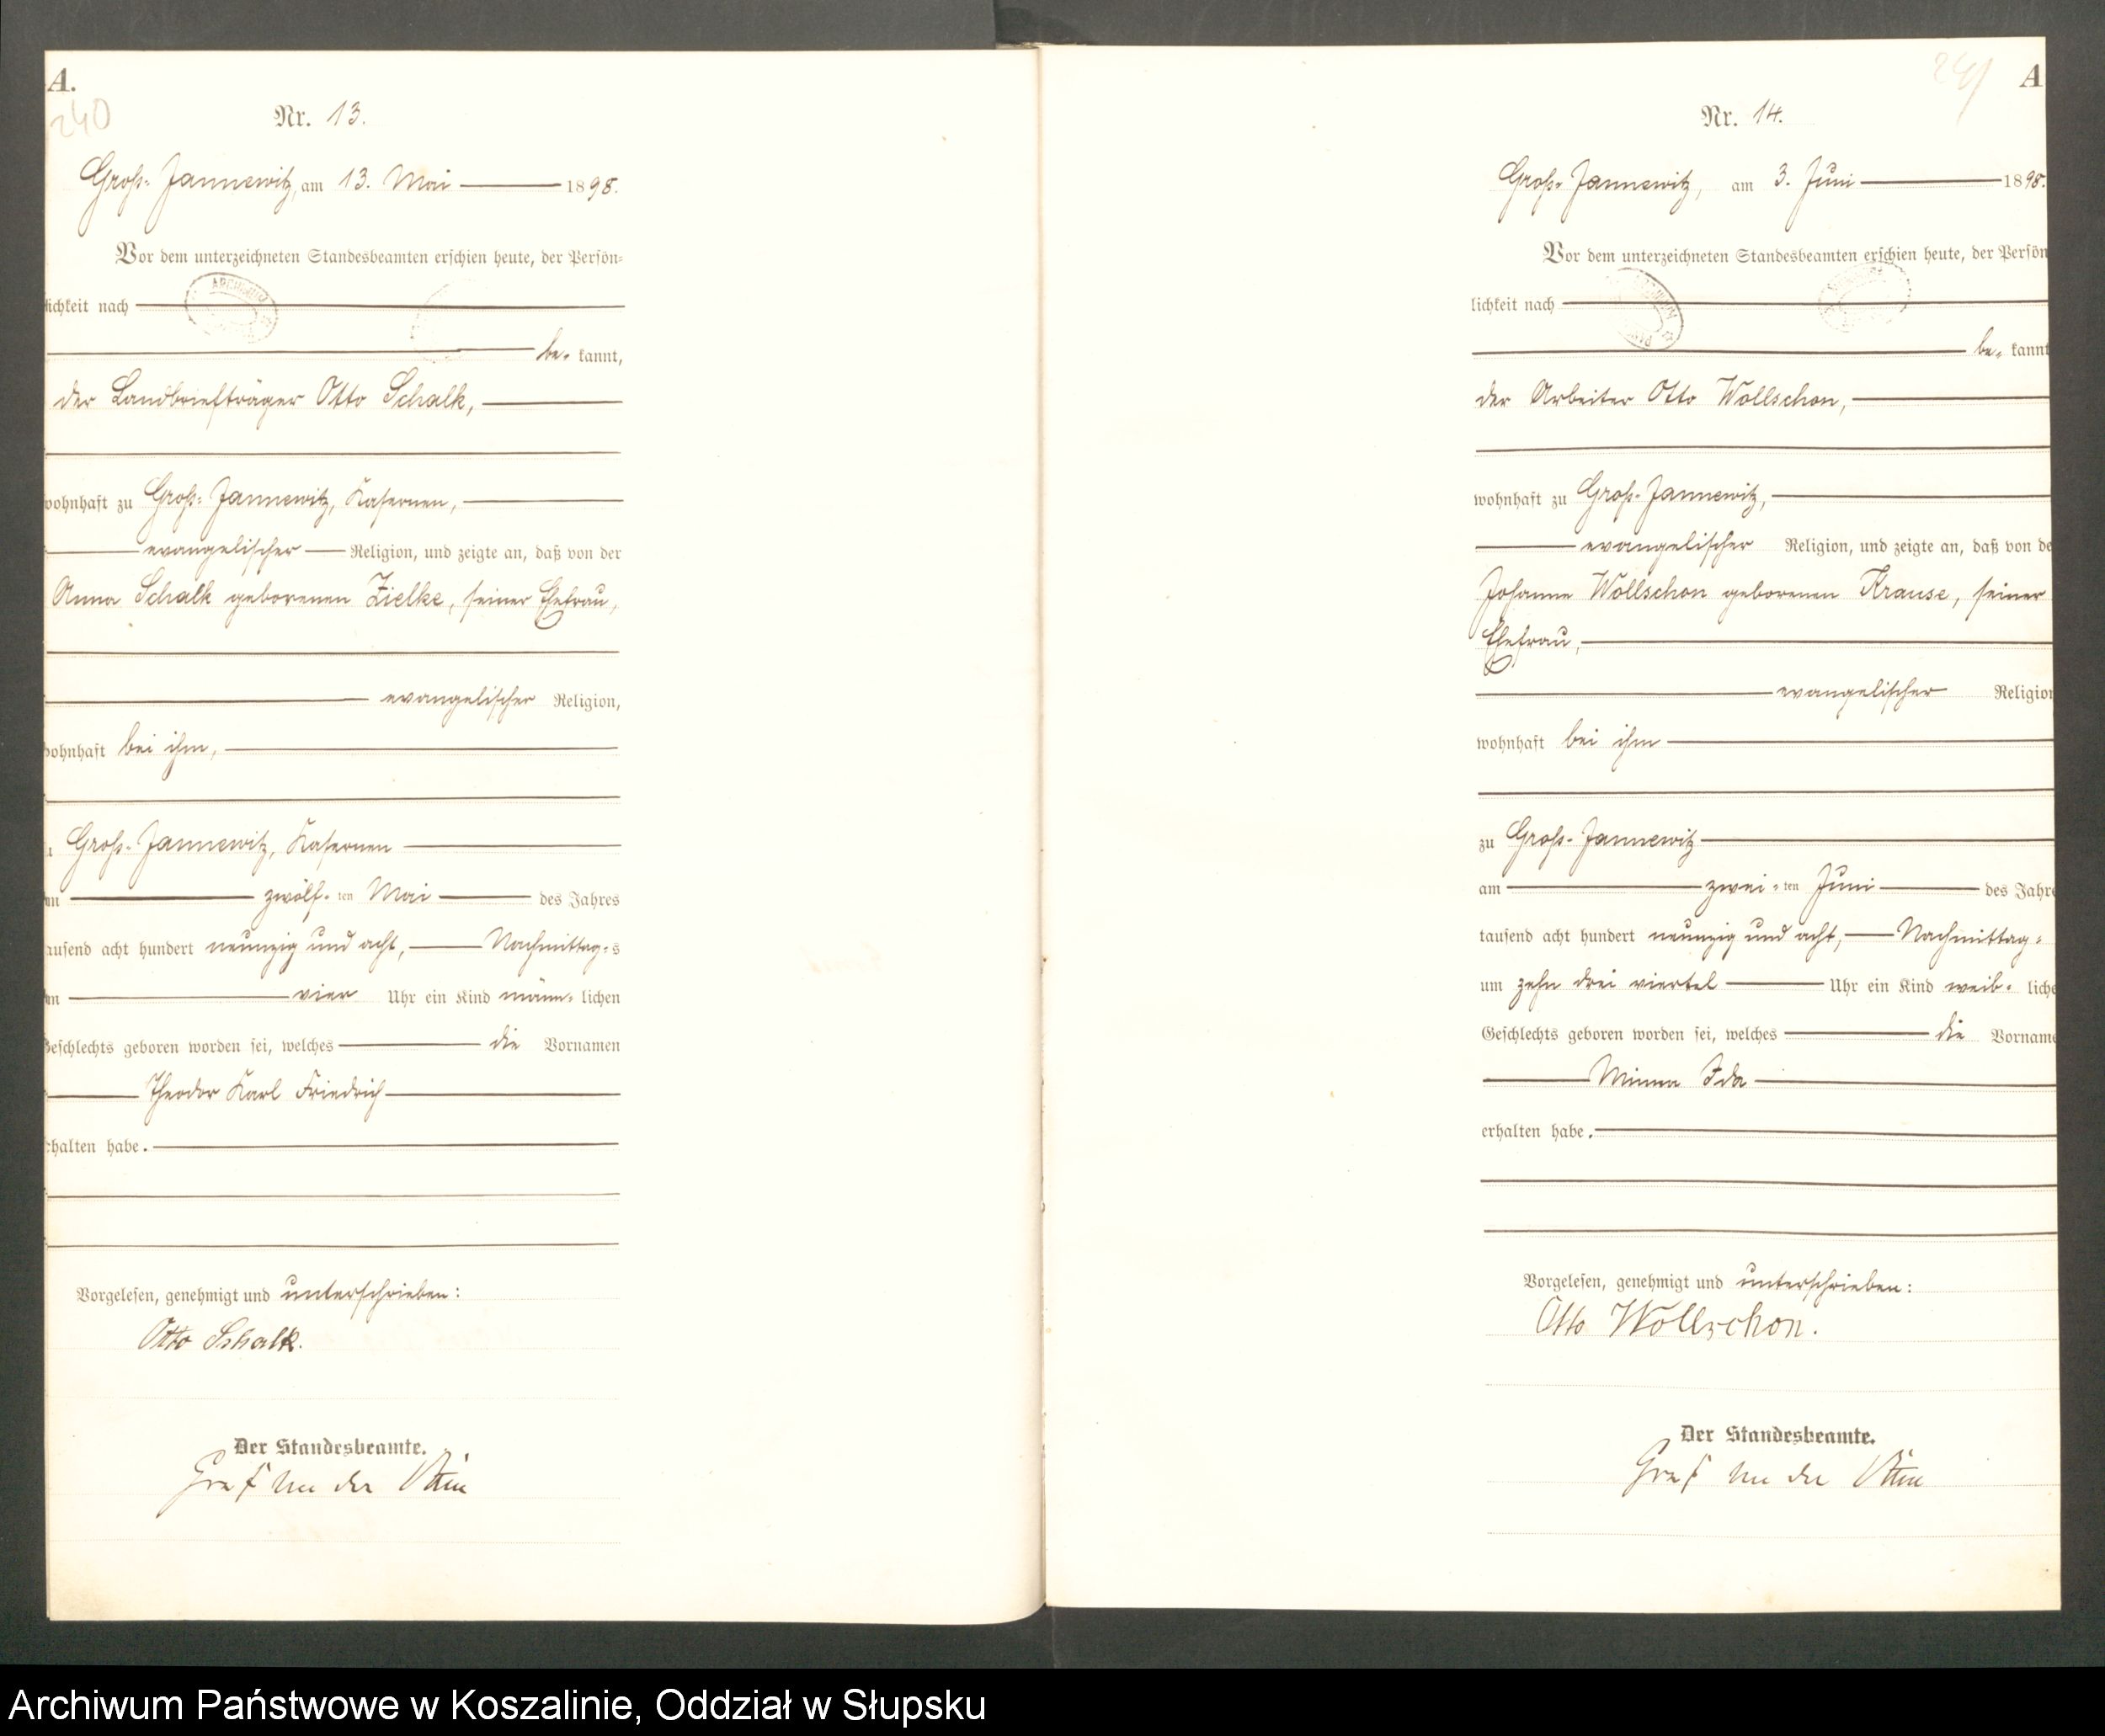 A.
240
Nr. 13.
Groß-Jannewitz, am 13. Mai 1898.
Vor dem unterzeichneten Standesbeamten erschien heute, der Persön-
lichkeit nach
ARCHIWUM
be- kannt,
der Landbriefträger Otto Schalk,
wohnhaft zu Groß-Jannewitz, Kasernen,
evangelischer Religion, und zeigte an, daß von der
Anna Schalk geborenen Zielke, seiner Ehefrau,
evangelischer Religion,
wohnhaft bei ihm,
Groß-Jannewitz, Kasernen
zwölf-ten Mai des Jahres
tausend acht hundert neunzig und acht, Nachmittag-s
vier Uhr ein Kind männ-lichen
Geschlechts geboren worden sei, welches die Vornamen
Theodor Karl Friedrich
erhalten habe.
Vorgelesen, genehmigt und unterschrieben:
Otto Schalk.
Der Standesbeamte.
Graf von der
A
241
Nr. 14.
Groß-Jannewitz, am 3. Juni 1898.
Vor dem unterzeichneten Standesbeamten erschien heute, der Persön
lichkeit nach
be- kannt
der Arbeiter Otto Wollschon,
wohnhaft zu Groß-Jannewitz,
evangelischer Religion, und zeigte an, daß von de
Johanne Wollschon geborenen Krause, seiner
Ehefrau,
evangelischer Religion
wohnhaft bei ihm
zu Groß-Jannewitz
am zwei-ten Juni des Jahre
tausend acht hundert neunzig und acht, Nachmittag-
um zehn drei viertel Uhr ein Kind weib-liche
Geschlechts geboren worden sei, welches die Vorname
Minna Ida
erhalten habe.
Vorgelesen, genehmigt und unterschrieben:
Otto Wollschon.
Der Standesbeamte.
Graf von der
Archiwum Państwowe w Koszalinie, Oddział w Słupsku